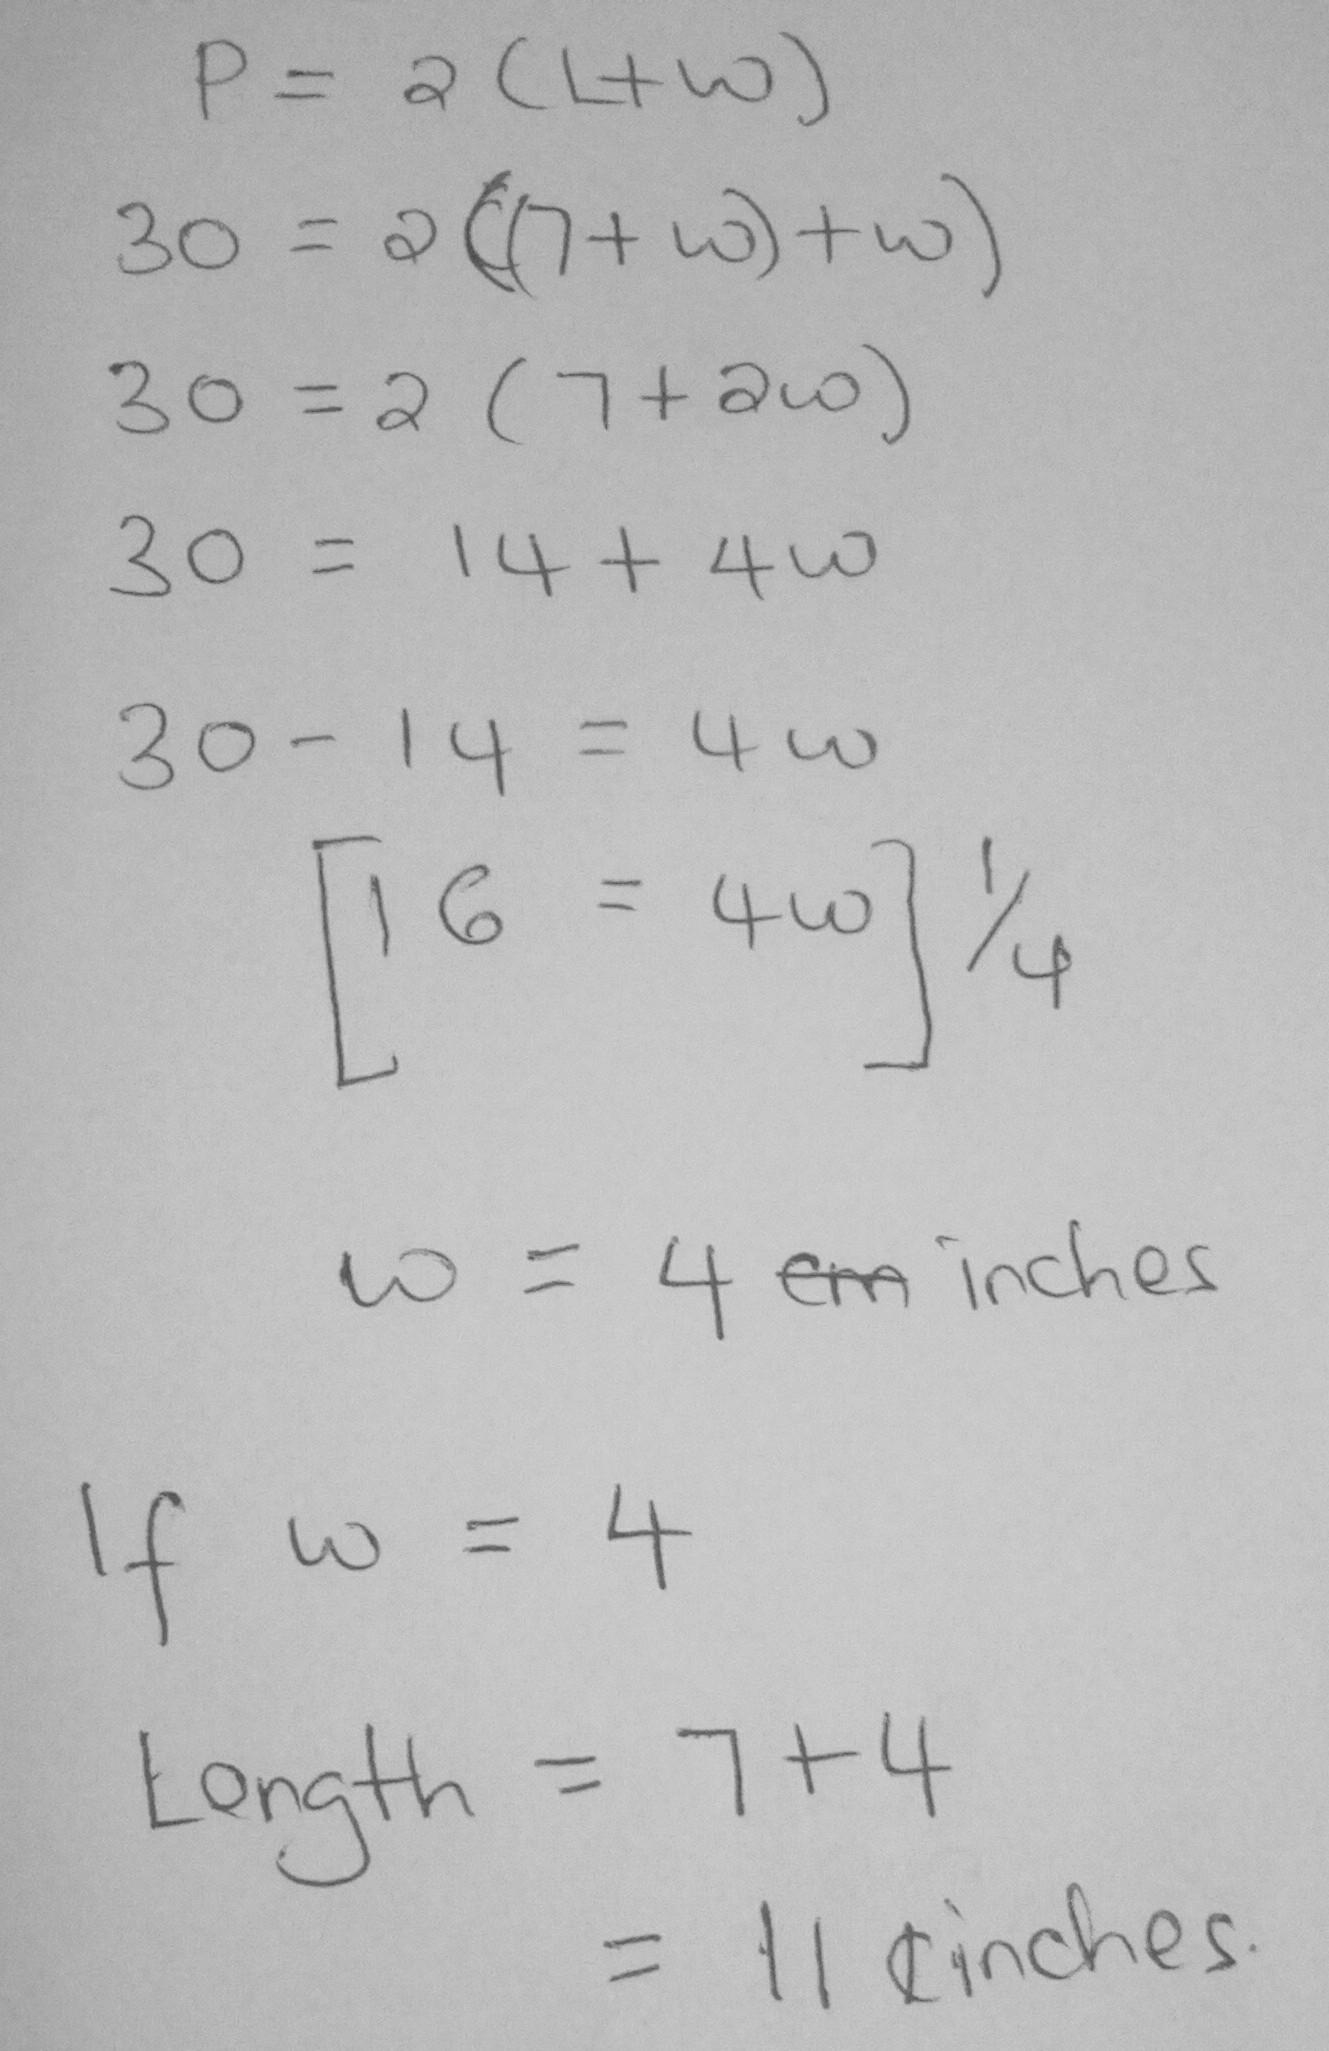 P = 2 (L+w)
30 = 2 ((7+w)+w)
30 = 2 (7+2w)
30 = 14 + 4w
30 - 14 = 4w
[16 = 4w] 1/4
w = 4 cm inches
If w = 4
Length = 7+4
= 11 cinches.